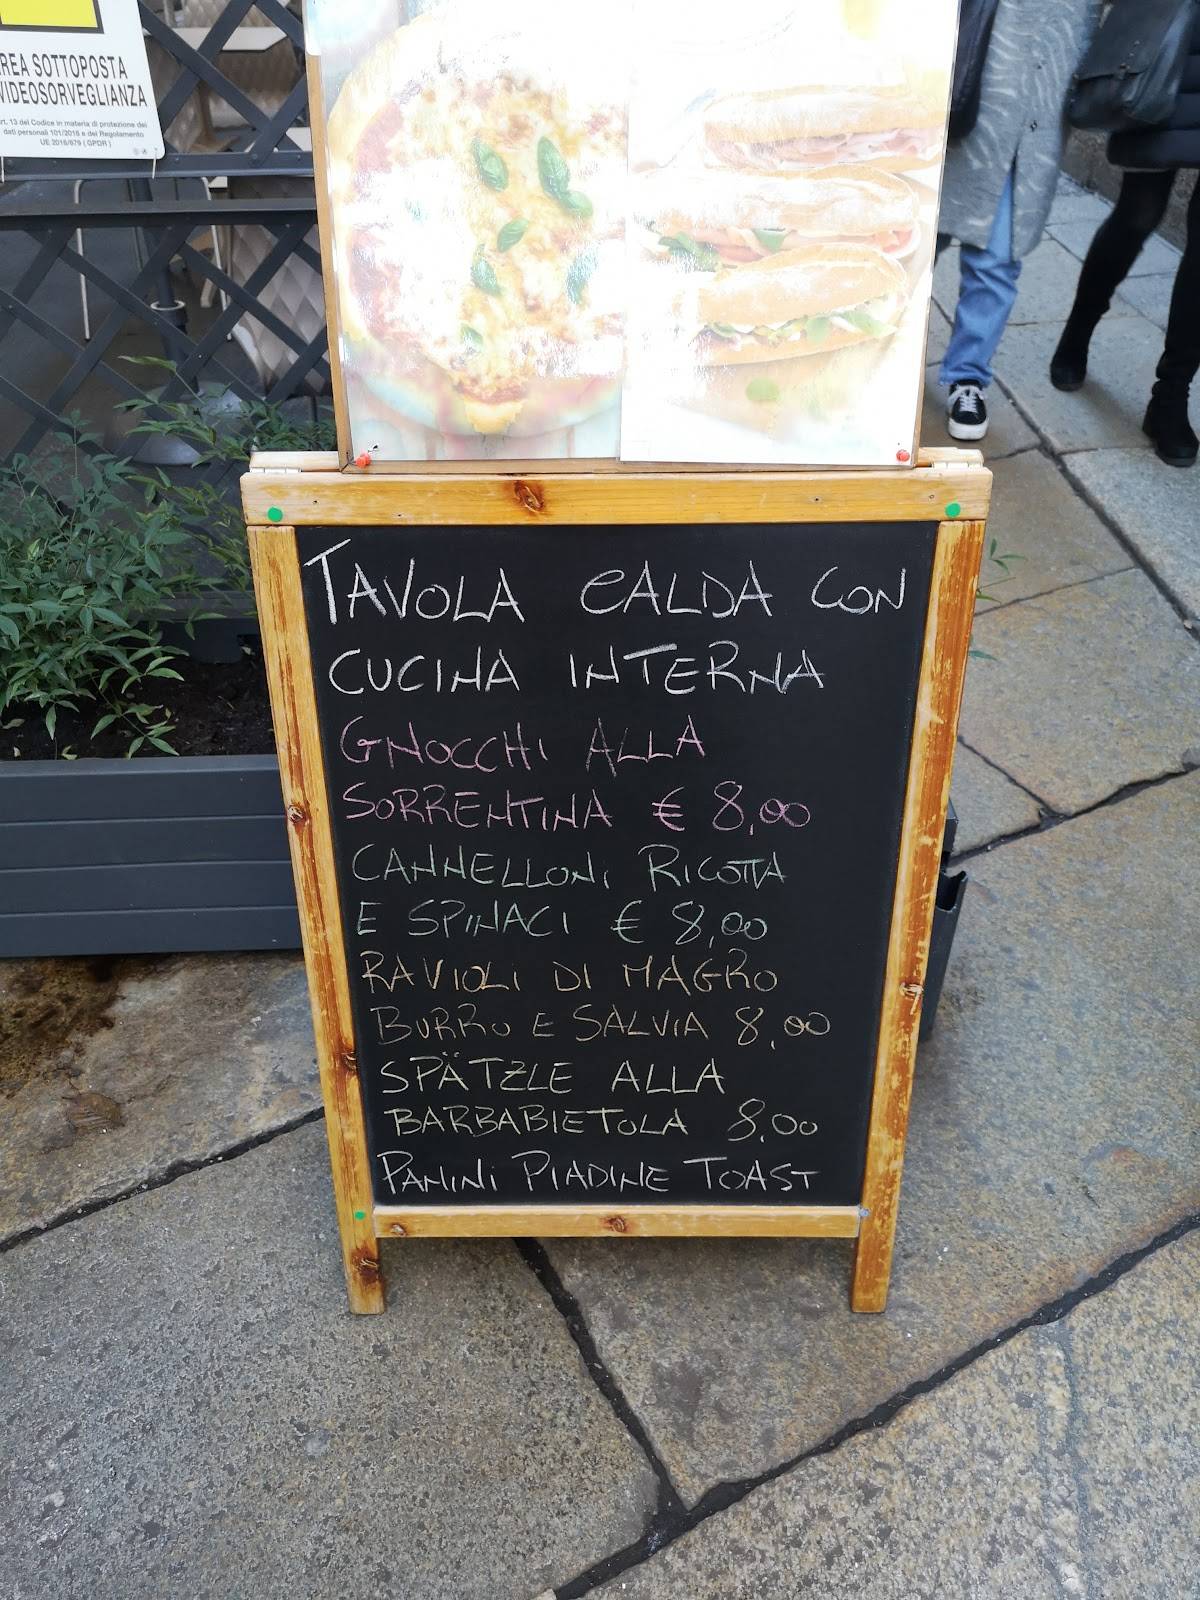 REA SOTTOPOSTA
VIDEOSORVEGLIANZA
rt. 13 del Codice in materia di protezione dei
dati personali 101/2018 e del Regolamento
UE 2016/679 ( GPDR )
TAVOLA CALDA CON
CUCINA INTERNA
GNOCCHI ALLA
SORRENTINA € 8,00
CANNELLONI RICOTTA
E SPINACI € 8,00
RAVIOLI DI MAGRO
BURRO E SALVIA 8,00
SPÄTZLE ALLA
BARBABIETOLA 8,00
PANINI PIADINE TOAST